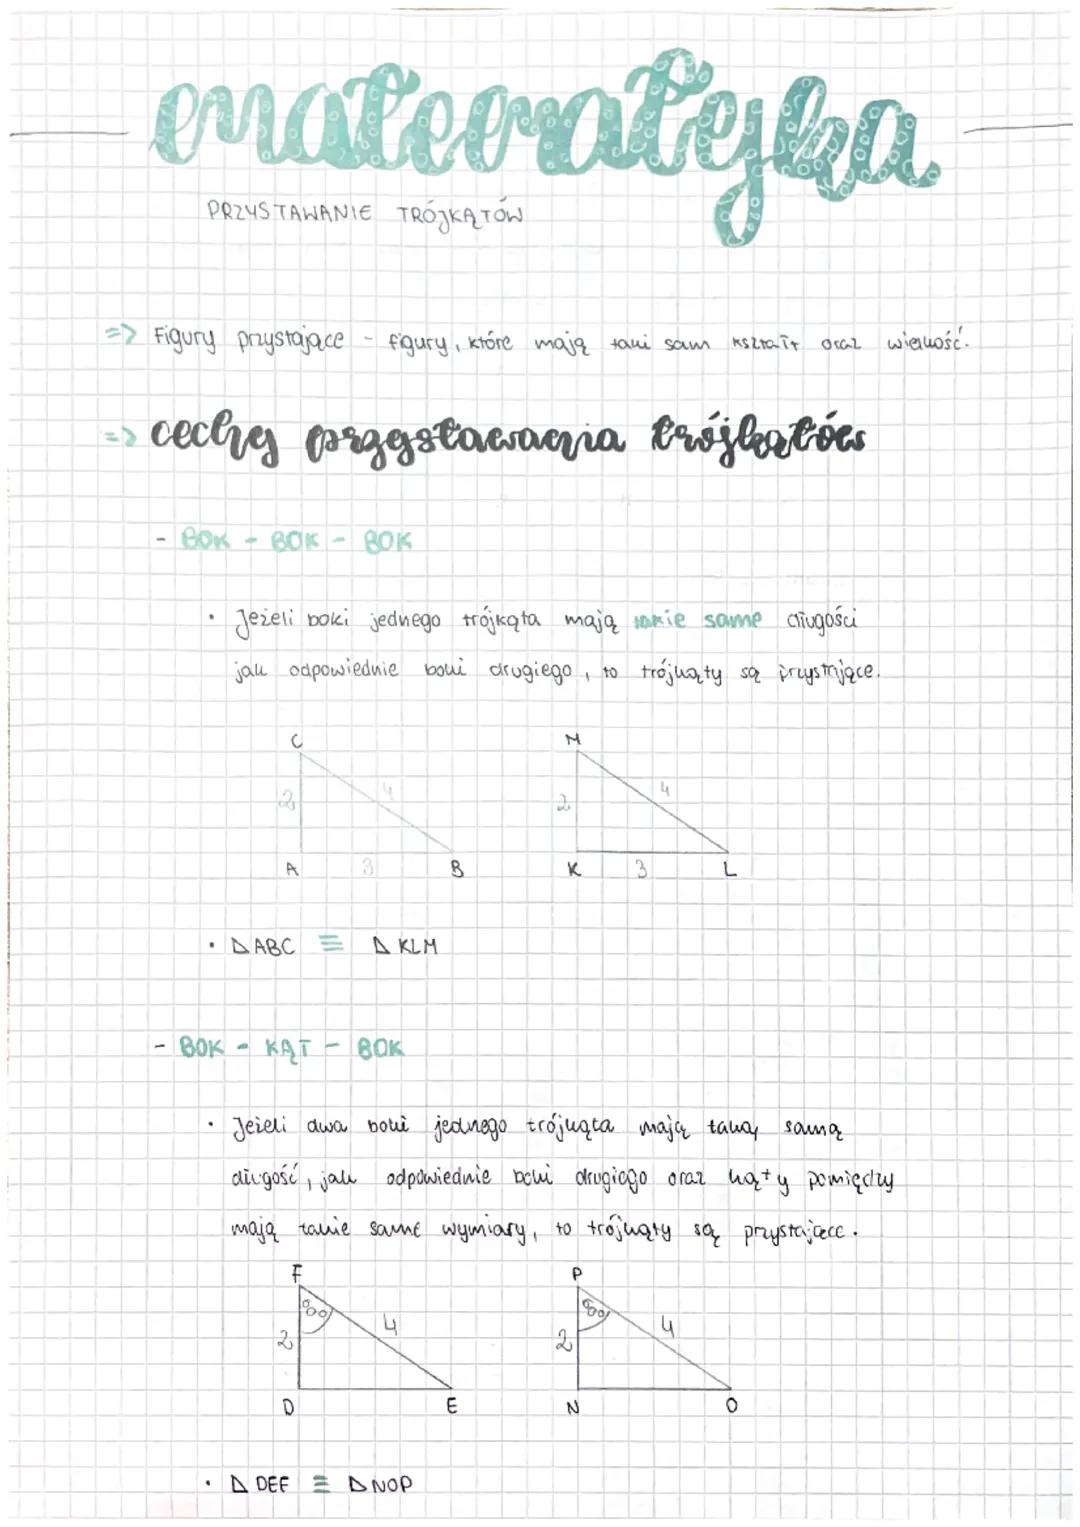 matematyka
PRZYSTAWANIE TRÓJKĄTÓW
=> Figury przystające - figury, które mają taki sam kształt oraz wielkość.
=> cechy przystawania trójkątów
- BOK - BOK - BOK
• Jeżeli boki jednego trójkąta mają takie same długości
jak odpowiednie boki drugiego, to trójkąty są przystające.
C M
2 4 2 4
A 3 B K 3 L
• △ABC ≡ △KLM
- BOK - KĄT - BOK
• Jeżeli dwa boki jednego trójkąta mają taką samą
długość, jak odpowiednie boki drugiego oraz kąty pomiędzy
mają takie same wymiary, to trójkąty są przystające.
F P
80 80
2 4 2 4
D E N O
• △DEF ≡ △NOP